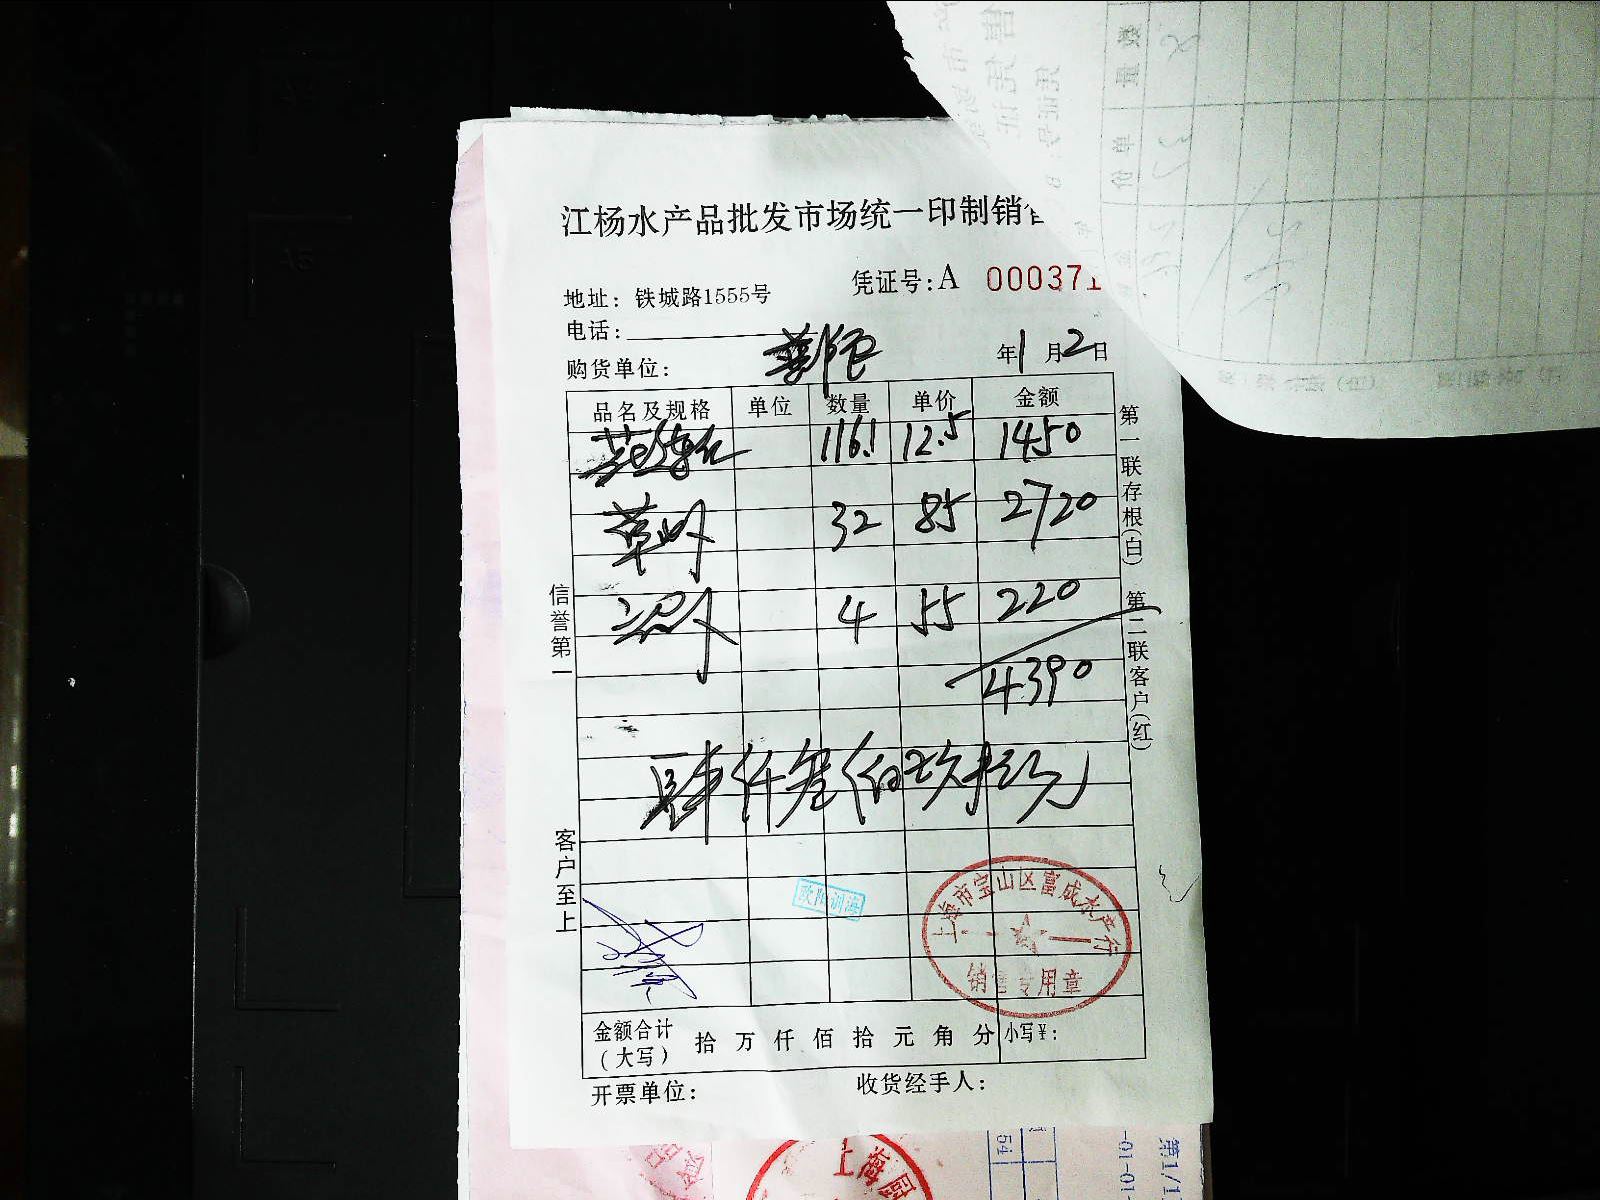 江杨水产品批发市场统一印制销售
凭证号:A 000371
地址: 铁城路1555号
电话:
购货单位:
年1月2日
品名及规格 单位 数量 单价 金额
116.1 12.5 1450
草虾 32 85 2720
4 55 220
4390
肆仟叁佰玖拾元
欧阳训海
上海市宝山区富成水产行
销售专用章
金额合计(大写) 拾 万 仟 佰 拾 元 角 分 小写¥:
开票单位: 收货经手人:
信誉第一
客户至上
第一联存根(白)
第二联客户(红)
上海
54
第1/1